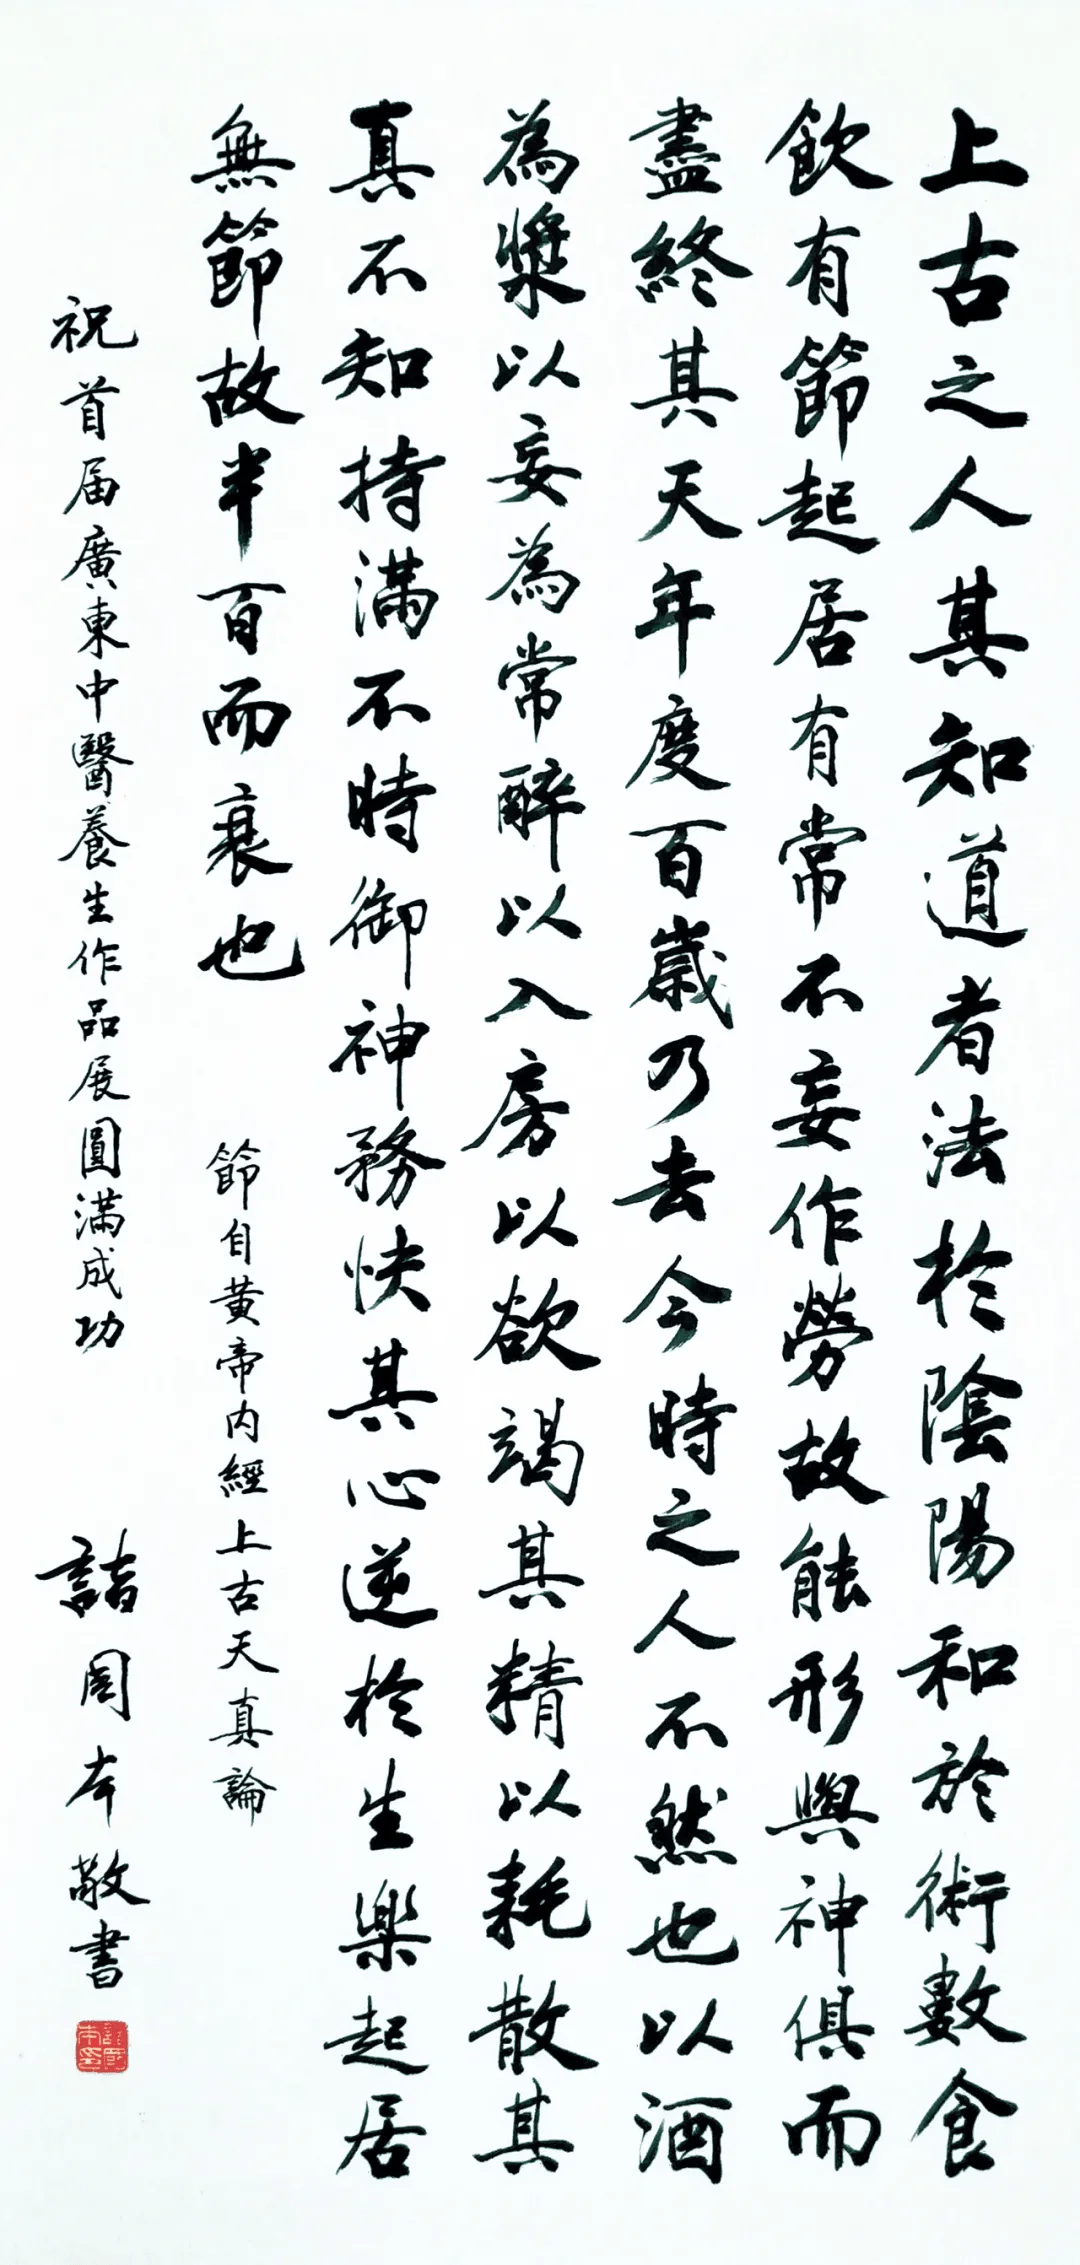 上古之人其知道者法於陰陽和於術數食
飲有節起居有常不妄作勞故能形與神俱而
盡終其天年度百歲乃去今時之人不然也以酒
為漿以妄為常醉以入房以欲竭其精以耗散其
真不知持滿不時御神務快其心逆於生樂起居
無節故半百而衰也
節自黄帝内經上古天真論
祝首届廣東中醫養生作品展圓滿成功
本敬書